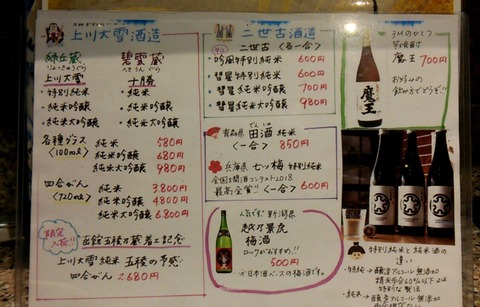 上川大雪酒造
緑丘蔵
上川大雪
・特別純米
・純米吟醸
・純米大吟醸
碧雲蔵
へきうんぐら
十勝
・純米
・純米吟醸
・純米大吟醸
各種グラス
<100ml>
純米 580円
純米吟醸 680円
純米大吟醸 980円
四合びん
<720ml>
純米 3.800
純米吟醸 4.800
純米大吟醸 6.800
限定
入荷!!
函館五稜乃蔵 記念
上川大雪 純米 五稜の予感
四合びん 2.680円
二世古酒造
二世古 <各一合>
吟風特別純米 600円
彗星特別純米 600円
彗星純米吟醸 700円
彗星純米大吟醸 980円
青森県 田酒 純米
でんしゅ
<一合> 850円
兵庫県 七ツ梅 特別純米
全国燗酒コンテスト2018
最高金賞!! <一合> 600円
人気です! 新潟県
越乃景虎
梅酒
ロックがおすすめ!!
500円
※日本酒ベースの梅酒です。
芋焼酎
魔王 700円
お好みの
飲み方でどうぞ!!
魔王
特別純米と純米酒の
違い